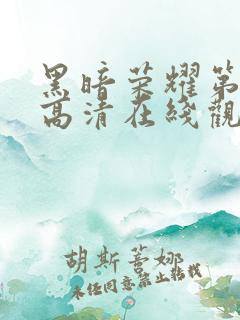 黑暗荣耀第
高清在线觀
胡斯蓦娜
未经同意禁止转载